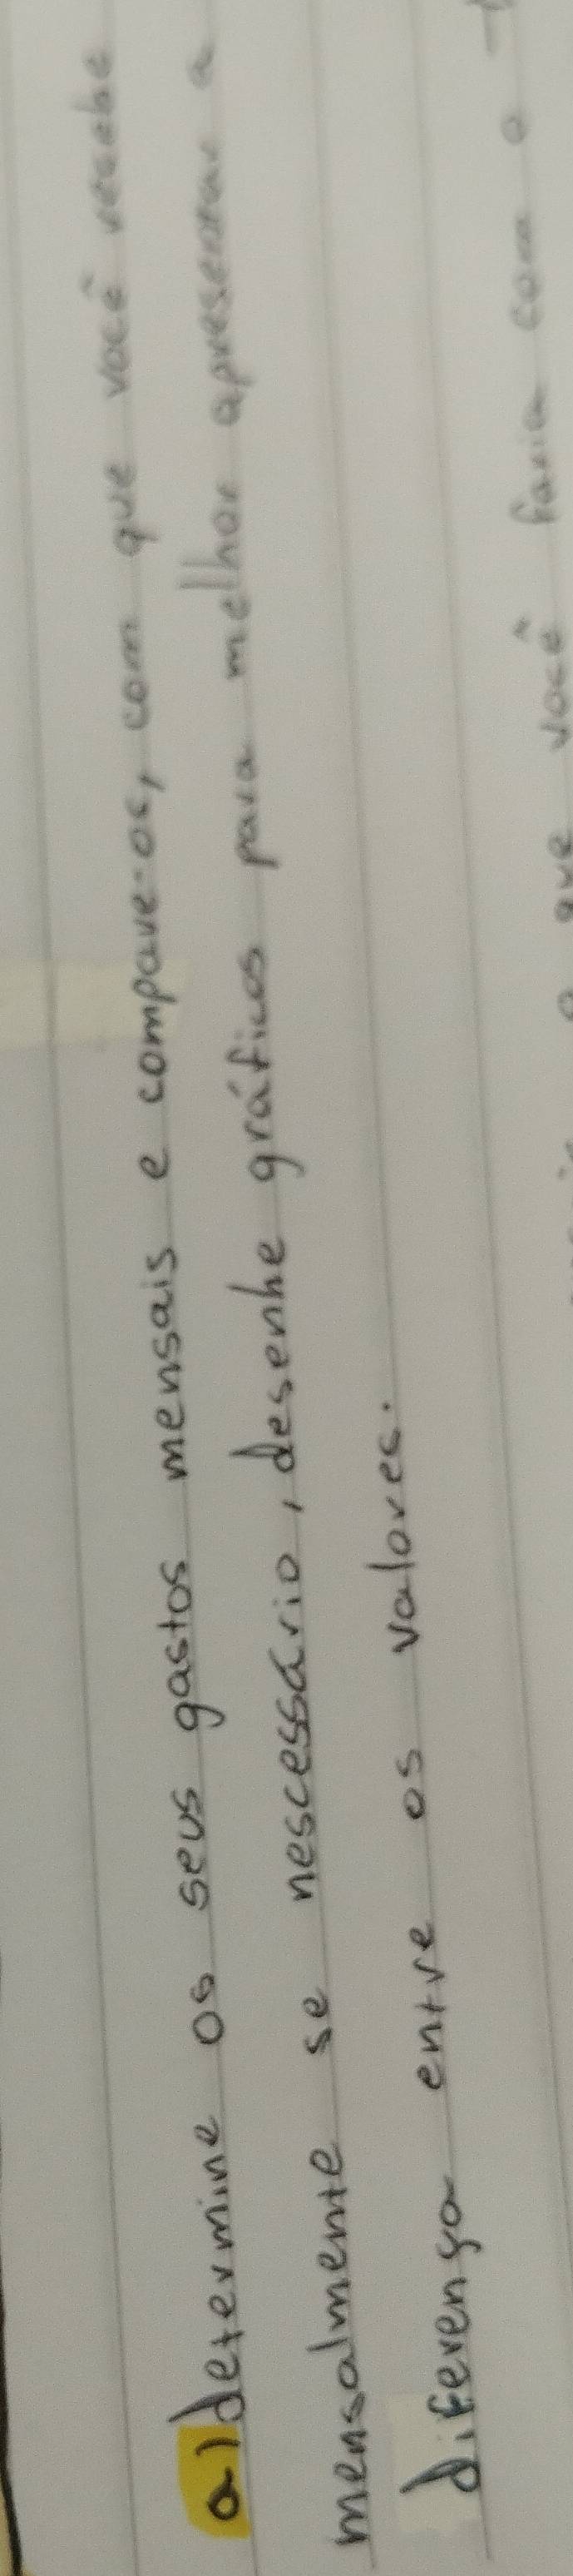 a) determine os seus gastos mensais e compare-os, com que você recebe
mensalmente se nescessário, desenhe gráficos para melhor apresentar a
diferença entre os valores.
o que você faria com o